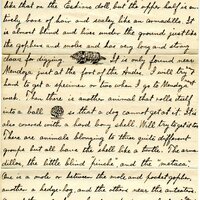 like that on the Eskimo doll, but the upper half is entirely
bare of hair and scaley like an armadillo. It
is almost blind and lives under the ground just like
the gophers and moles and has very long and strong
claws for digging. It is only found near
Mendoza just at the foot of the Andes. I will try
hard to get a specimen or two when I go to Mendoza next
wek. Then there is another animal that rolls itself
into a ball so that a dog cannot get at it. It is
also covered with a hard bony shell. Will try to get two
There are animals belonging to three quite different
groups but all have the shell like a turtle. The arma
dillo, the little blind "pinchi", and the "mataca".
One is a mole or between the mole and pocket gopher,
another a hedge-hog, and the other near the anteaters